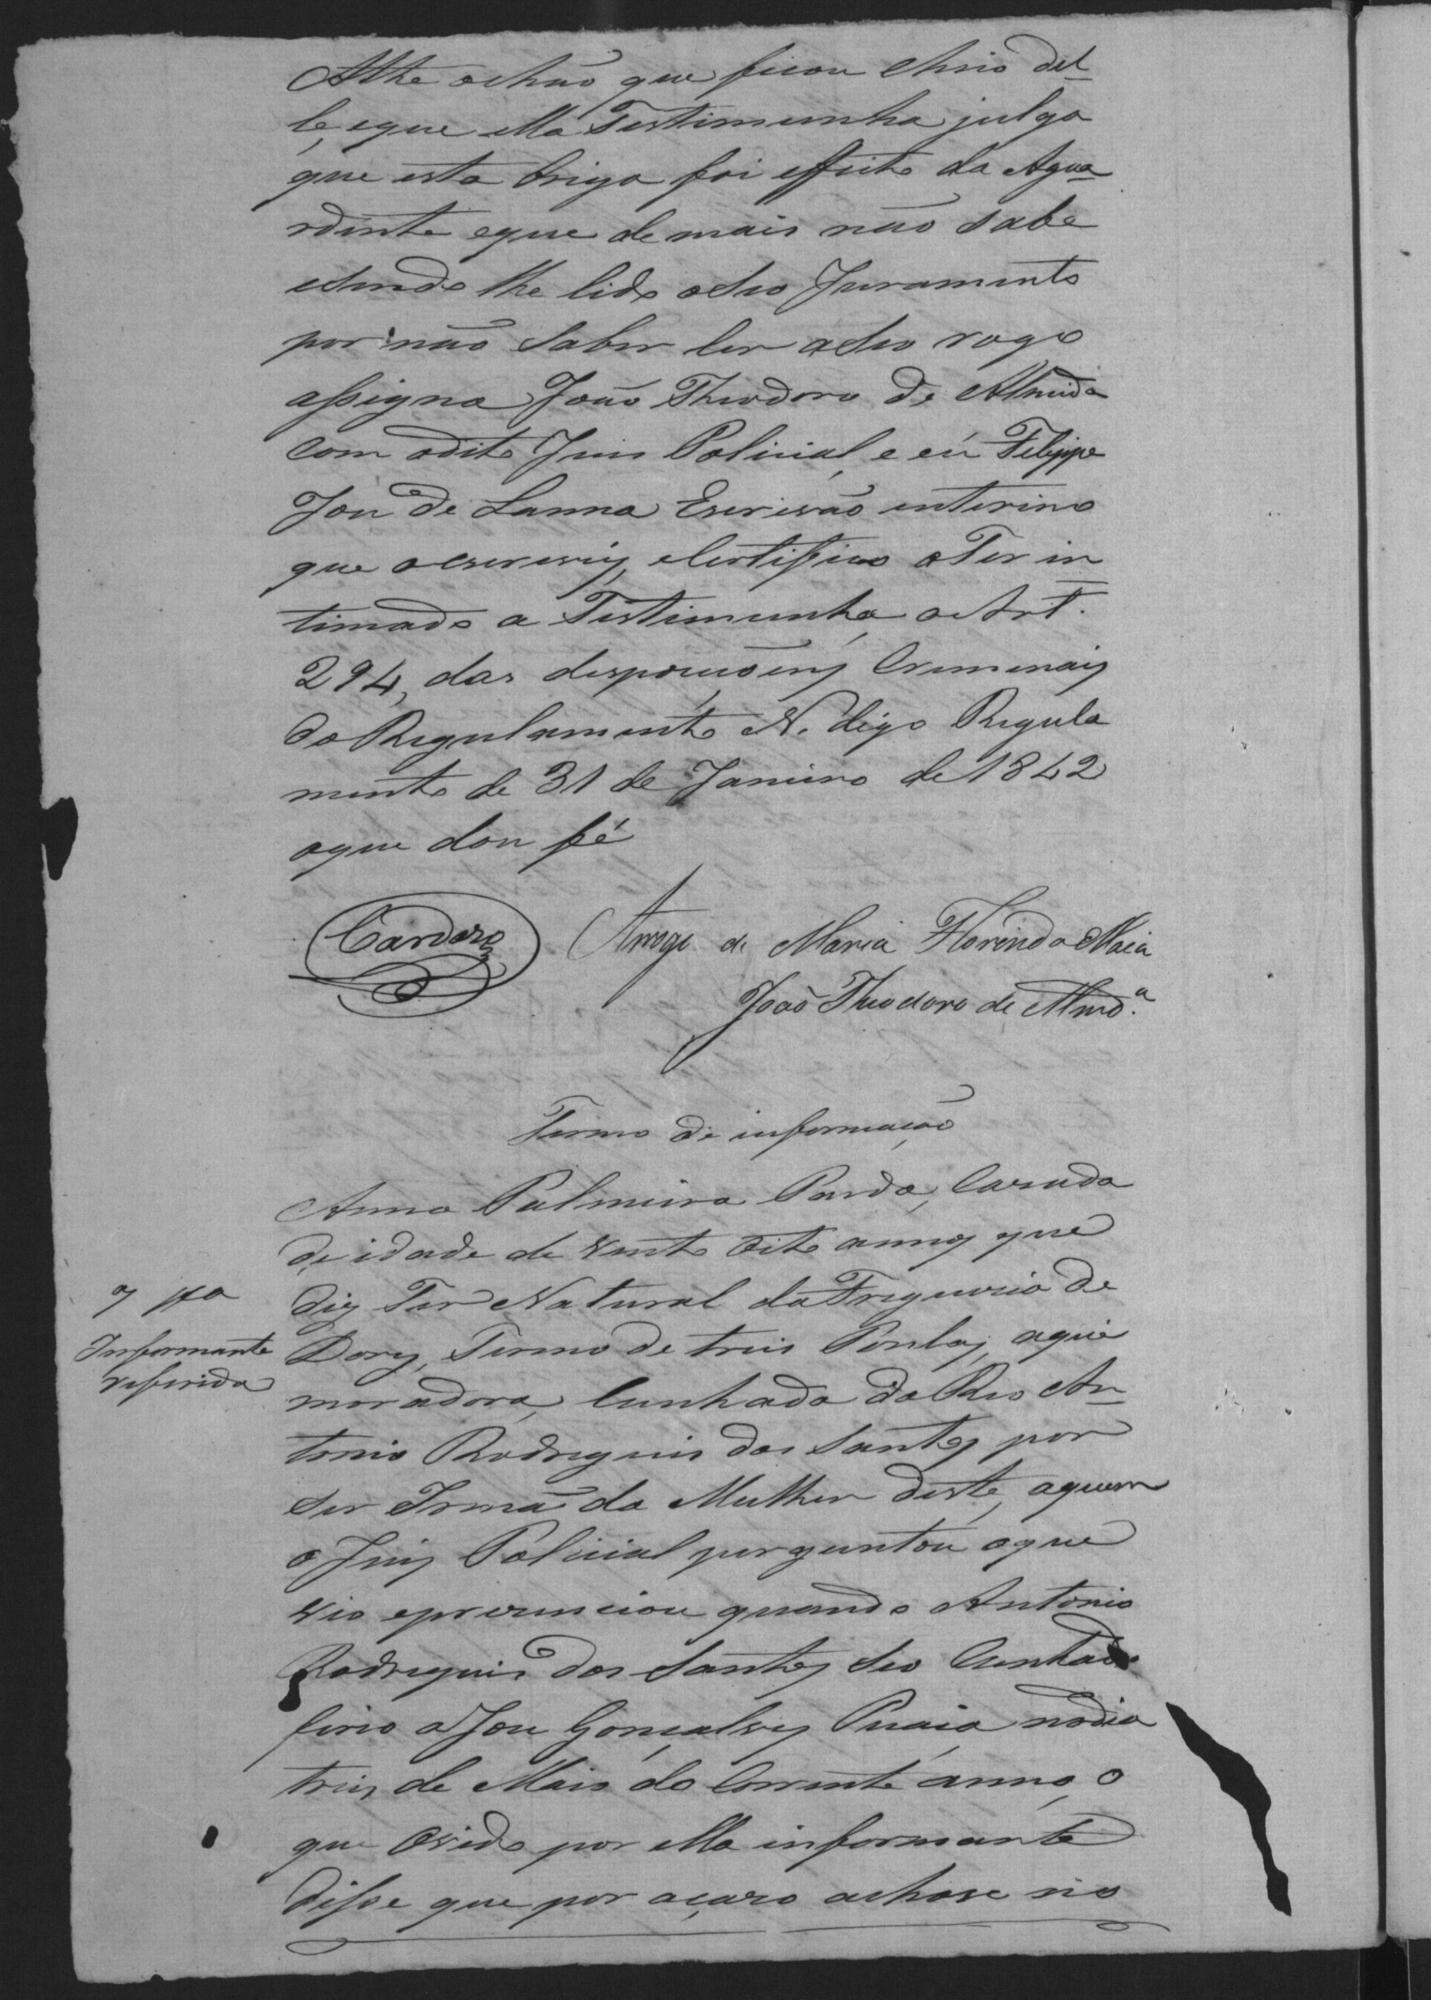 Athe o chão que ficou cheio del-
le, e que ella Testimunha julga
que esta briga foi effeito da Agua-
rdinte e que de mais não sabe
e sendo lhe lido o seo Juramento
por não saber ler a seo rogo
assigna João Theodoro de Almeida
com o dito Juis Policial, e eú Filippe
José de Lanna Escrivão interino
que o escrevÿ, e Certifico o Ter in-
timado a Testimunha o Art.
294, das desposicõens Creminais
do Regulamento N. digo Regula
mento de 31 de Janeiro de 1842
oque dou fé
Cardozo Arrogo de Maria Florinda Maia
João Theodoro de Almdª
Termo de informação
Anna Palmeira Parda, Cazada
de idade de vinte oito annos que
diz Ter Natural da Freguezia de
Dores, Termo de tres Pontas, aqui
moradora, Cunhada do Reo An-
tonio Rodrigues dos Santos por
ser Irmã da Mulher deste, aquem
o Juiz Policial perguntou oque
vio eprezenciou quando Antonio
Rodrigues dos Santos seo Cunhado
ferio a José Gonçalves Puaia nodia
tres de Maio do Corrente anno, o
que Ovido por ella informante
disse que por acazo achase no
7
Informante
referida